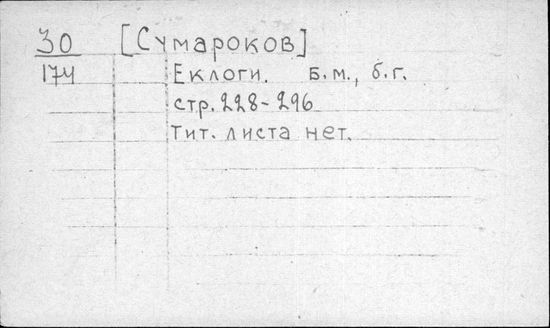 30 [Сумароков]
174 Еклоги. Б.м., б.г.
стр. 228-296
Тит. листа нет.